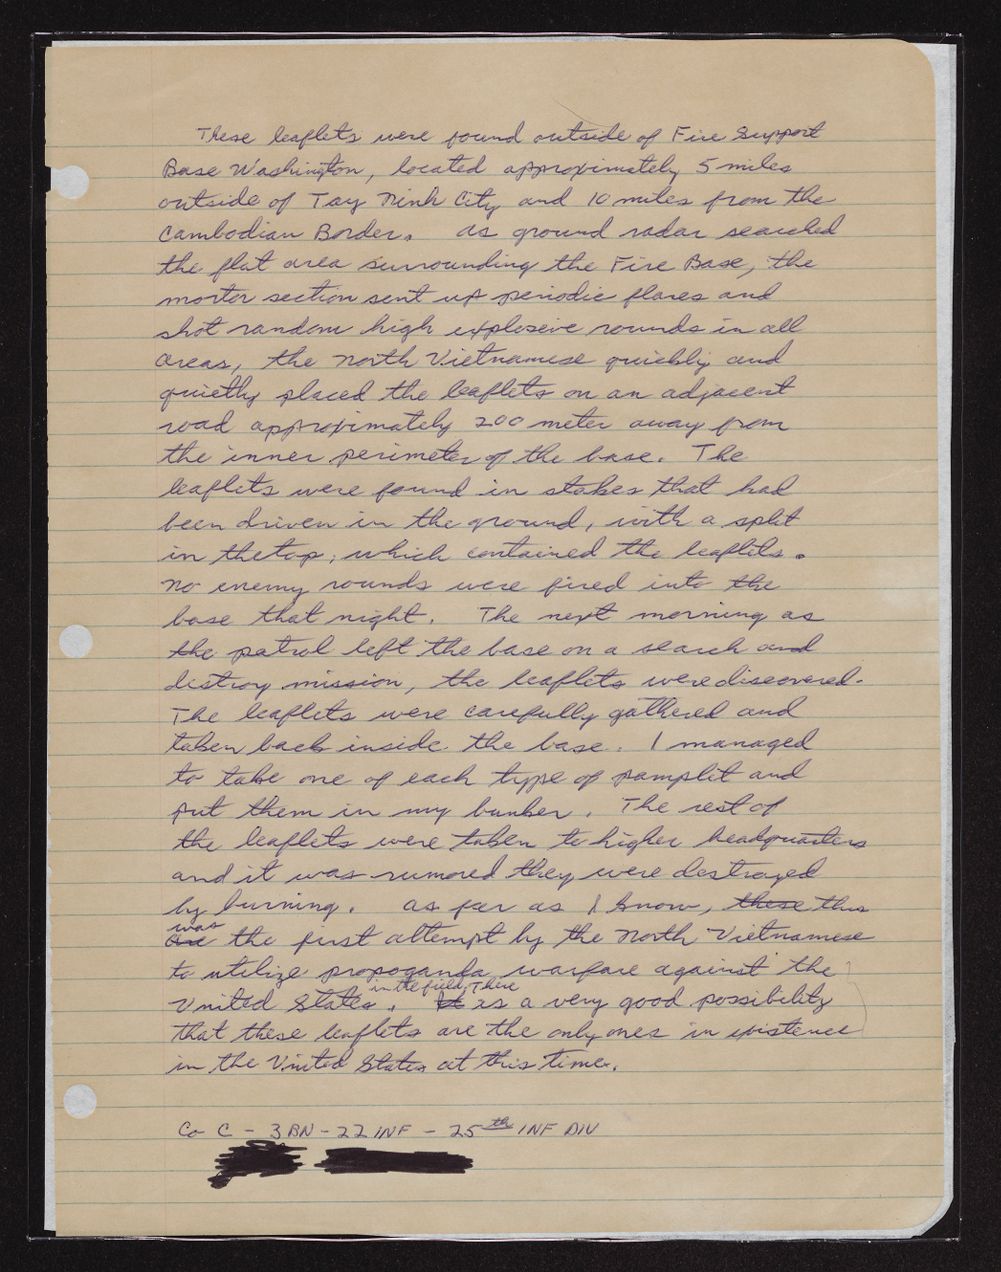 These leaflets were found outside of Fire Support
Base Washington, located approximately 5 miles
outside of Tay Ninh City and 10 miles from the
Cambodian Border. As ground radar searched
the flat area surrounding the Fire Base, the
morter section sent up periodic flares and
shot random high explosive rounds in all
areas, the North Vietnamese quickly and
quietly placed the leaflets on an adjacent
road approximately 200 meter away from
the inner perimeter of the base. The
leaflets were found in stakes that had
been driven in the ground, with a split
in the top, which contained the leaflets.
No enemy rounds were fired into the
base that night. The next morning as
the patrol left the base on a search and
distroy mission, the leaflets were discovered.
The leaflets were carefully gathered and
taken back inside the base. I managed
to take one of each type of pamplit and
put them in my bunker. The rest of
the leaflets were taken to higher headquarters
and it was rumored they were destroyed
by burning. As far as I know, these this
was
are the first attempt by the North Vietnamese
to utilize propoganda warfare against the
in the field, There
United States. It is a very good possibility
that these leaflets are the only ones in existence
in the United States at this time.
Co C - 3 BN - 22 INF - 25th INF DIV